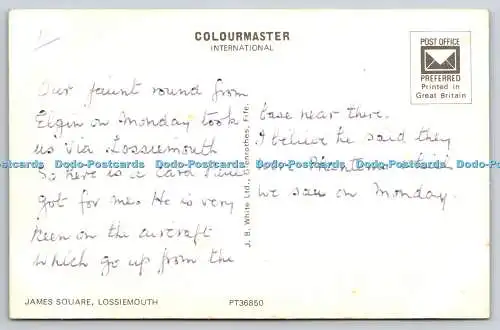 COLOURMASTER
INTERNATIONAL
POST OFFICE
PREFERRED
Printed in
Great Britain
Our jaunt round from
Elgin on Monday took
us via Lossiemouth
So here is a Card
got for me. He is very
keen on the aircraft
which go up from the
base near there.
I believe he said they
were Phantoms
we saw on Monday.
Dodo-Postcards Dodo-Postcards Dodo-Postcards Dodo-Postcards Dodo-Postcards Dodo-Postcards
J. B. White Ltd., Glenrothes, Fife.
JAMES SQUARE, LOSSIEMOUTH
PT36850